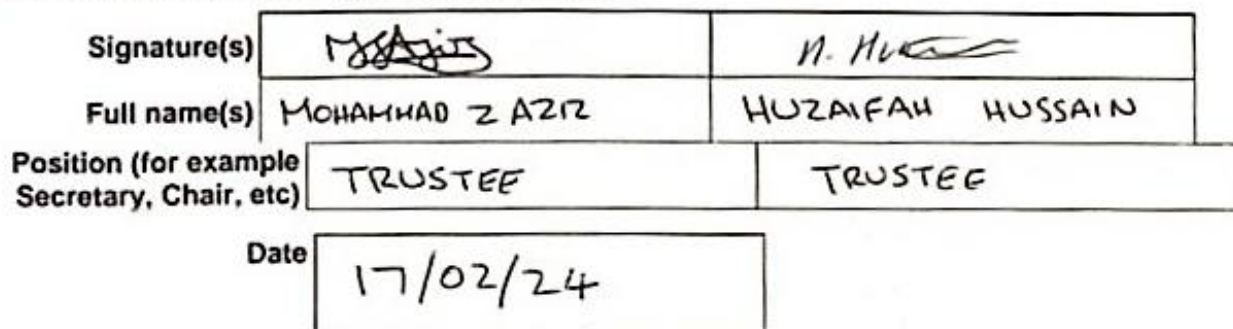 Signature(s)
Full name(s) MOHAMMAD Z AZIZ HUZAIFAH HUSSAIN
Position (for example
Secretary, Chair, etc) TRUSTEE TRUSTEE
Date 17/02/24